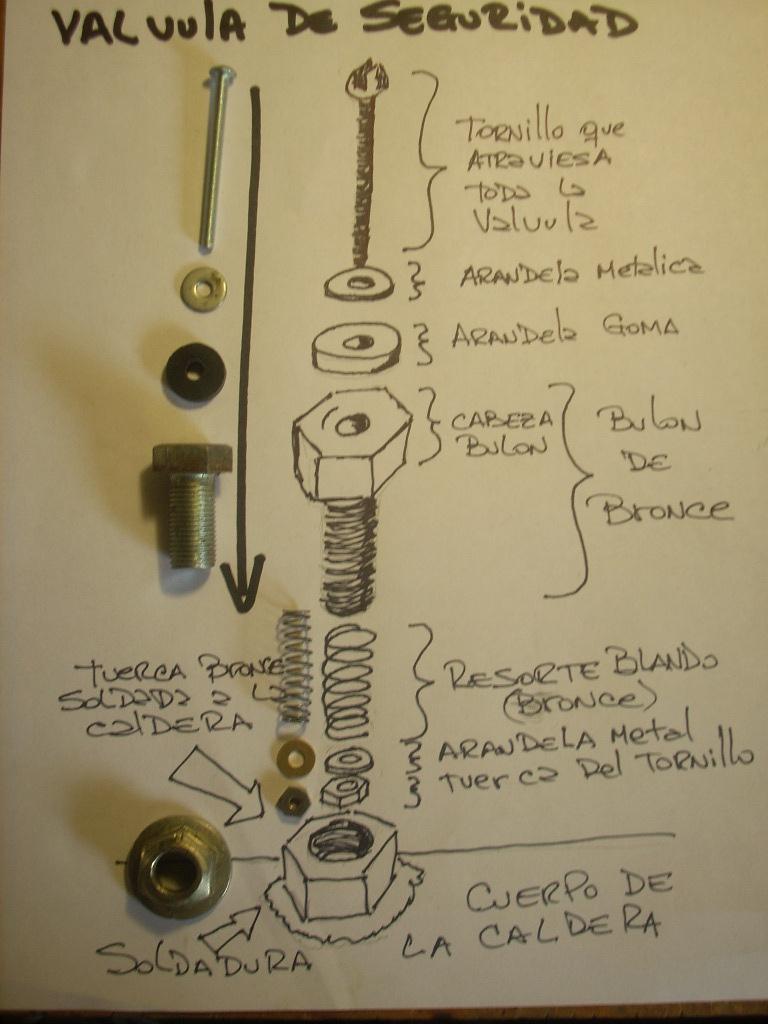 VALVULA DE SEGURIDAD
TORNILLO QUE
ATRAVIESA
TODA LA
VALVULA
ARANDELA METALICA
ARANDELA GOMA
CABEZA
BULON
BULON
DE
BRONCE
TUERCA BRONCE
SOLDADA A LA
CALDERA
RESORTE BLANDO
(BRONCE)
ARANDELA METAL
TUERCA DEL TORNILLO
CUERPO DE
LA CALDERA
SOLDADURA